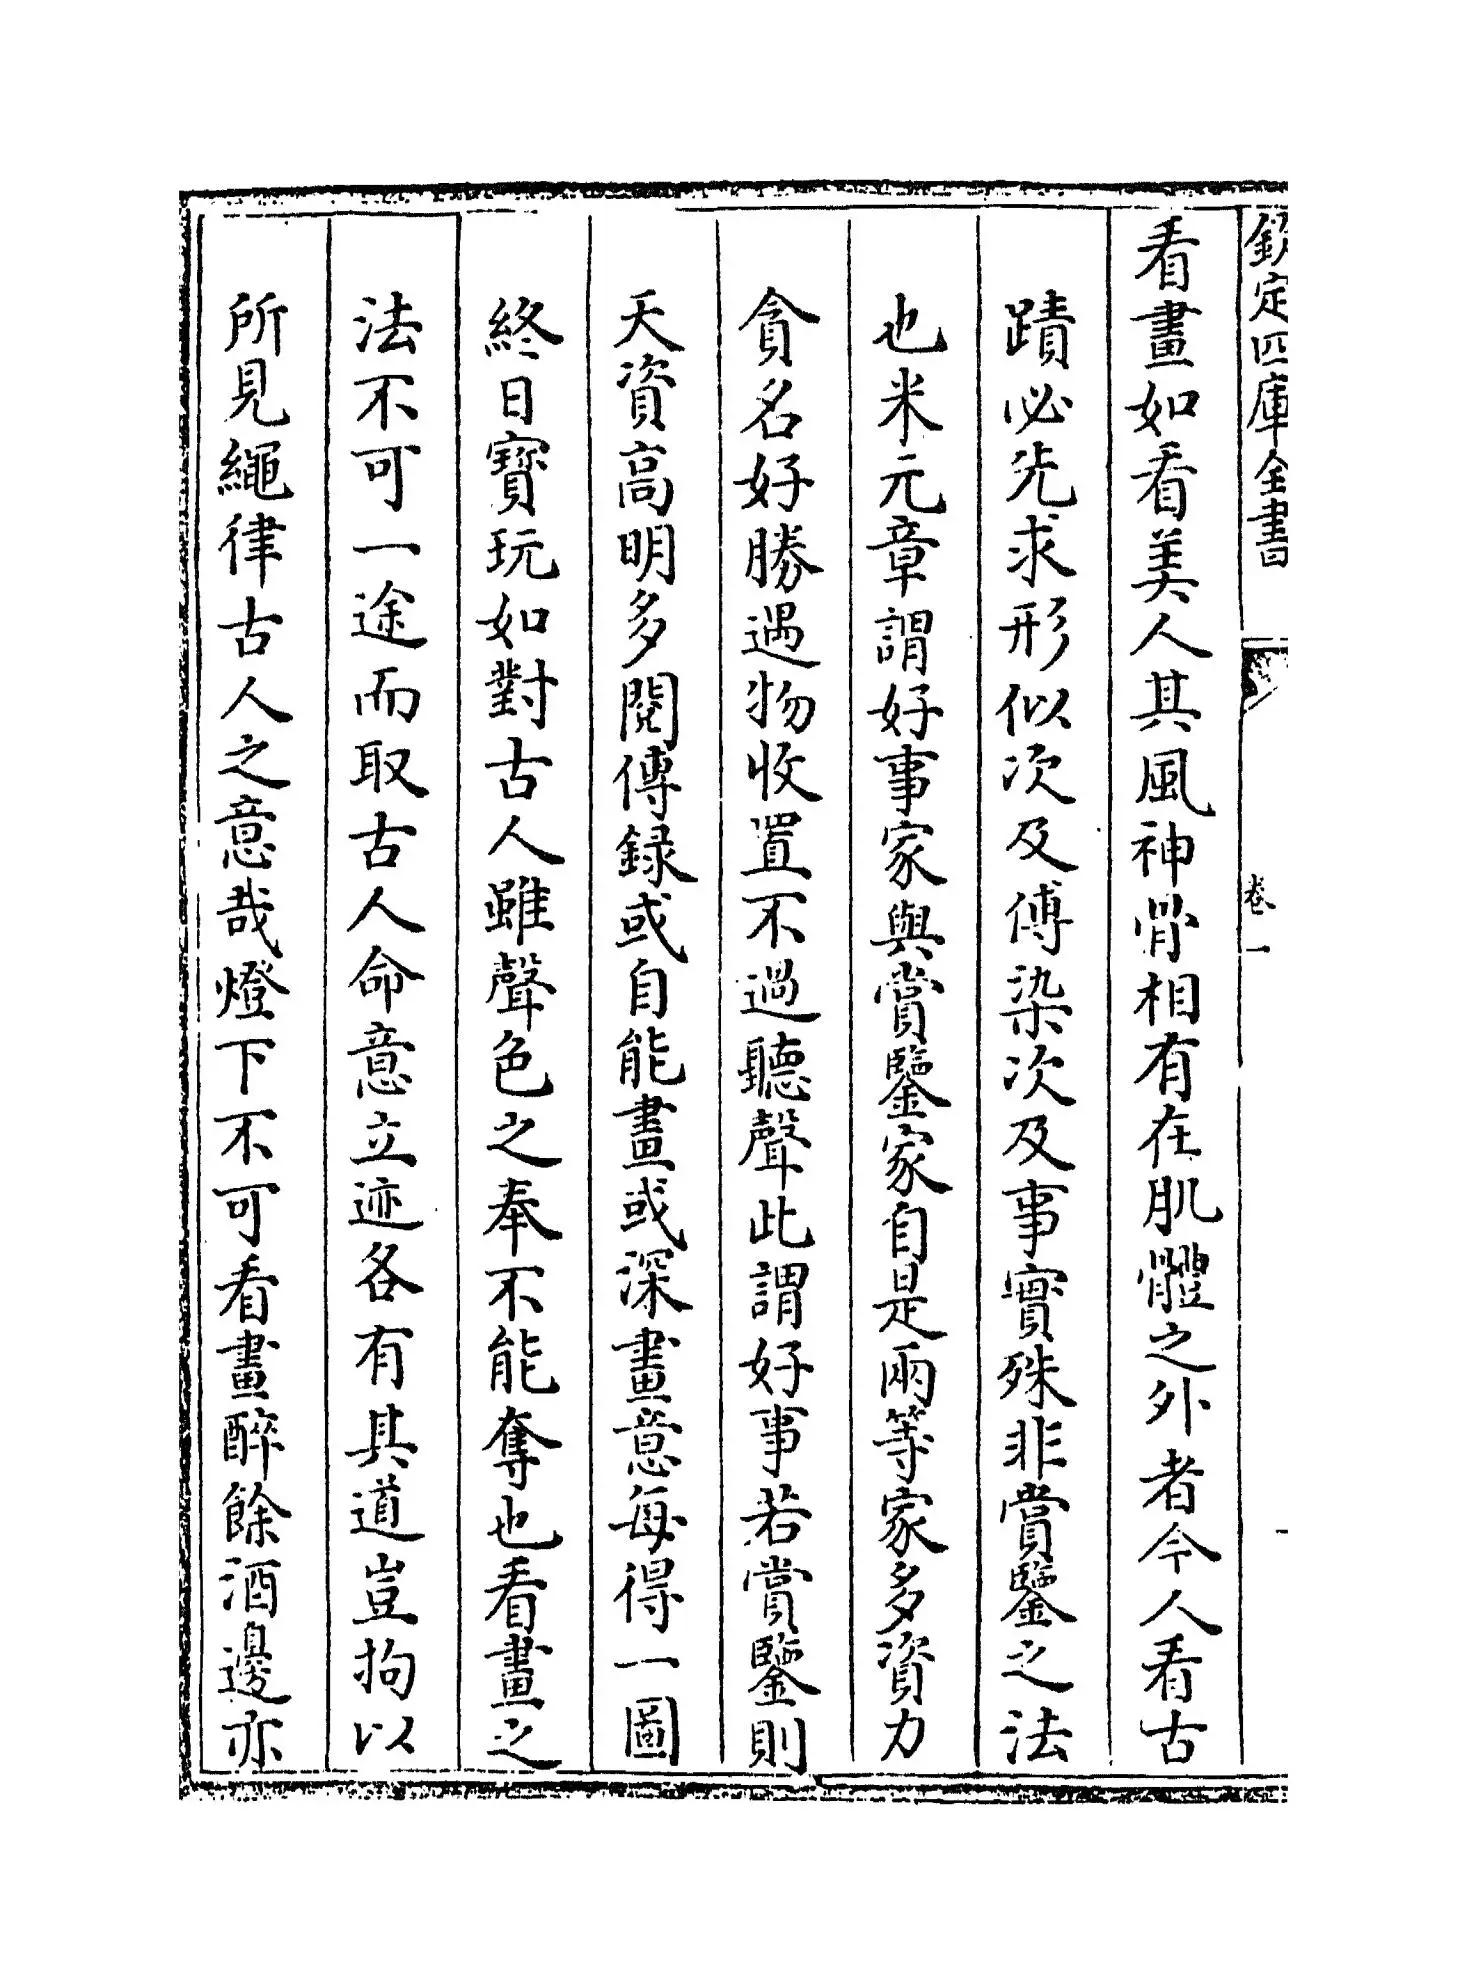 欽定四庫全書
卷一
看畫如看美人其風神骨相有在肌體之外者今人看古
蹟必先求形似次及傅染次及事實殊非賞鑒之法
也米元章謂好事家與賞鑒家自是兩等家多資力
貪名好勝遇物收置不過聽聲此謂好事若賞鑒則
天資高明多閱傳録或自能畫或深畫意每得一圖
終日寶玩如對古人雖聲色之奉不能奪也看畫之
法不可一途而取古人命意立迹各有其道豈拘以
所見繩律古人之意哉燈下不可看畫醉餘酒邊亦